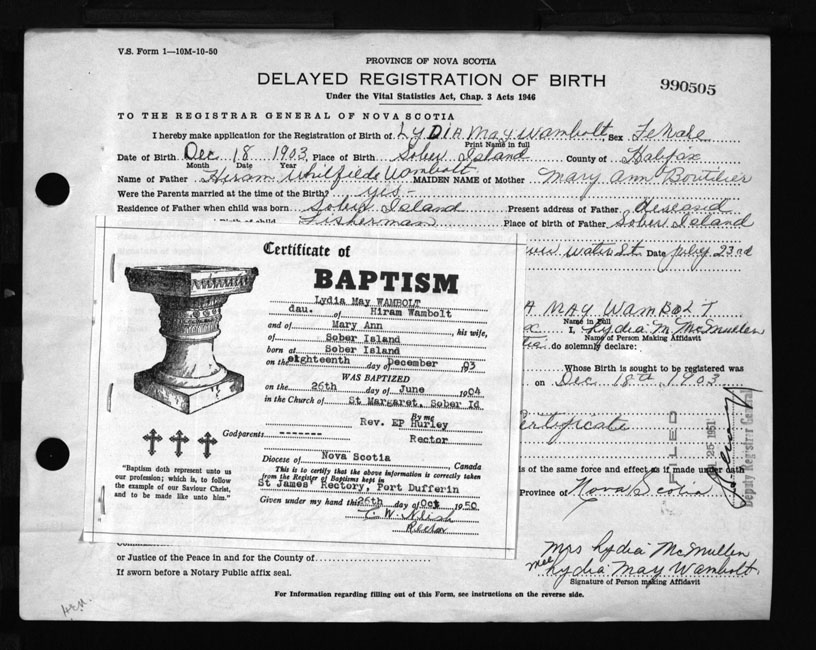 V.S. Form 1—10M-10-50
PROVINCE OF NOVA SCOTIA
DELAYED REGISTRATION OF BIRTH
990505
Under the Vital Statistics Act, Chap. 3 Acts 1946
TO THE REGISTRAR GENERAL OF NOVA SCOTIA
I hereby make application for the Registration of Birth of LYDIA May Wambolt, Sex Female
Print Name in full
Date of Birth Dec 18 1903, Place of Birth Sober Island County of Halfax
Month Date Year
Name of Father Hiram Whilfiede Wambolt MAIDEN NAME of Mother Mary Ann Boutilier
Were the Parents married at the time of the Birth? yes -
Residence of Father when child was born Sober Island Present address of Father deseasd
Birth of child Fisherman Place of birth of Father Sober Island
Water St. Date July 23rd
A MAY WAMBOLT
Name in Full
I, Lydia M. McMullen
Name of Person Making Affidavit
do solemnly declare:
Whose Birth is sought to be registered was
on Dec 18th 1903
Certificate
FILED
25 1951
Deputy Registrar General
is of the same force and effect as if made under oath
Province of Nova Scotia
Certificate of
BAPTISM
Lydia May WAMBOLT
dau. of Hiram Wambolt
and of Mary Ann, his wife,
of Sober Island
born at Sober Island
on the eighteenth day of December, 03
WAS BAPTIZED
on the 26th day of June 1904
in the Church of St Margaret, Sober Id
By me
Rev. EP Hurley
Godparents -------
Rector
Diocese of Nova Scotia, Canada
This is to certify that the above information is correctly taken
from the Register of Baptisms kept in
St James' Rectory, Port Dufferin
Given under my hand this 26th day of Oct 1950
Rector
"Baptism doth represent unto us
our profession; which is, to follow
the example of our Saviour Christ,
and to be made like unto him."
or Justice of the Peace in and for the County of
If sworn before a Notary Public affix seal.
Mrs Lydia McMullen
nee Lydia May Wambolt
Signature of Person making Affidavit
For Information regarding filling out of this Form, see instructions on the reverse side.